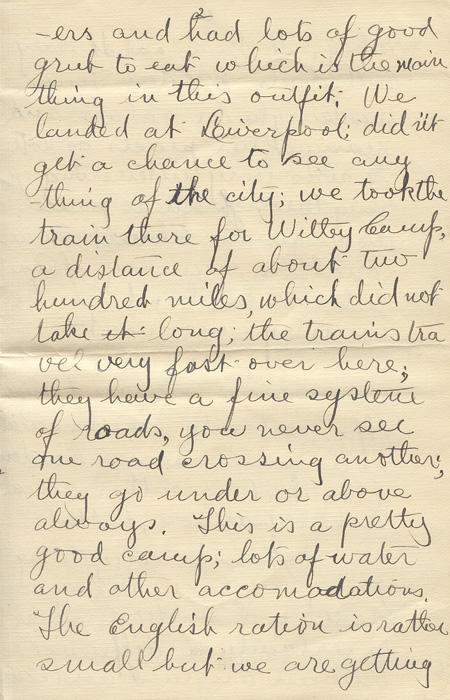 2
-ers and had lots of good
grub to eat which is the main
thing in this outfit. We
landed at Liverpool; didn't
get a chance to see any
-thing of the city; we took the
train there for Witley Camp,
a distance of about two
hundred miles, which did not
take it long; the trains tra
vel very fast over here;
they have a fine system
of roads, you never see
one road crossing another;
they go under or above
always. This is a pretty
good camp; lots of water
and other accomadations.
The English ration is rather
small but we are getting